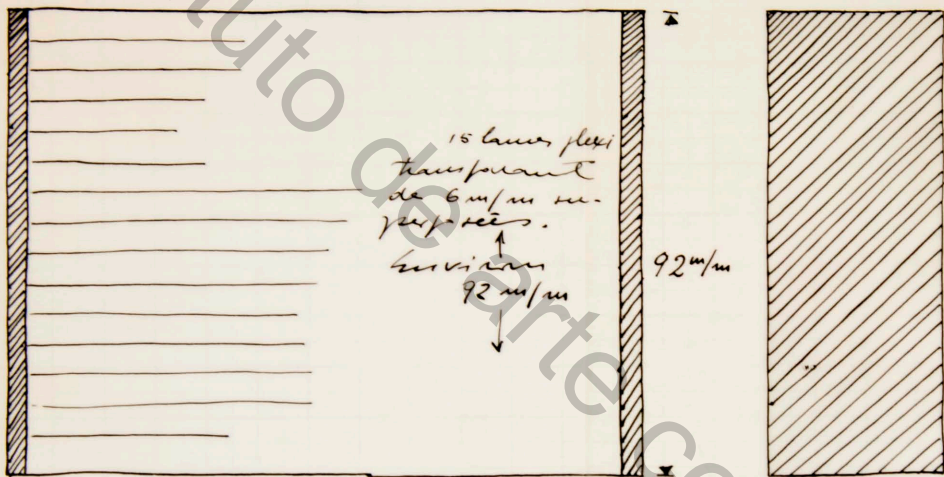 15 lames plexi
transparant
de 6 m/m su-
perposées.
Environ
92 m/m
92 m/m
tuto de arte co